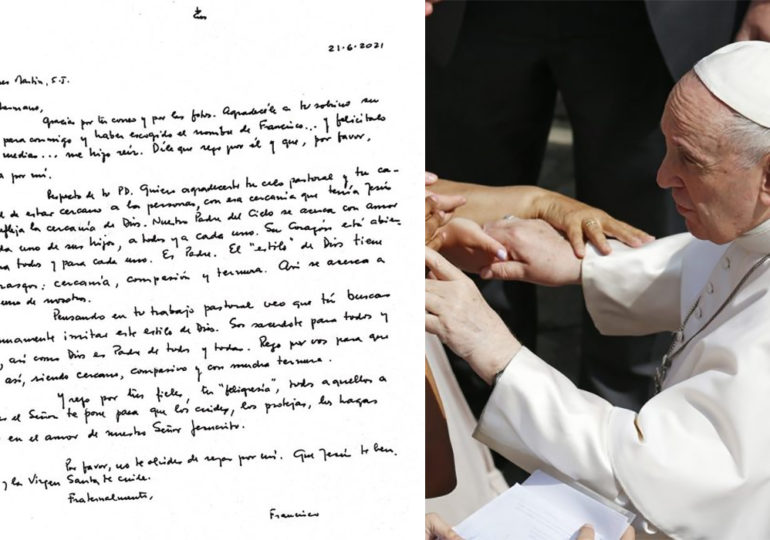 21·6·2021
Martin, S.J.
Gracias por tu correo y por las fotos. Agradecéle a tu sobino su
para conmigo y haber escogido el nombre de Francisco... y felicitalo
medias... me hizo reír. Dile que rezo por él y que, por favor,
por mi.
Respecto de tu PD. Quiero agradecerte tu celo pastoral y tu ca-
de estar cercano a las personas, con esa cercanía que tenía Jesús
refleja la cercanía de Dios. Nuestro Padre del Cielo se acerca con amor
uno de sus hijos, a todos y a cada uno. Su Corazón está abie-
todos y para cada uno. Es Padre. El "estilo" de Dios tiene
rasgos: cercanía, compasión y ternura. Así se acerca a
uno de nosotros.
Pensando en tu trabajo pastoral veo que tú buscas
imitar este estilo de Dios. Sos sacerdote para todos y
, así como Dios es Padre de todos y todas. Rezo por vos para que
así, siendo cercano, compasivo y con mucha ternura.
Y rezo por tus fieles, tu "feligresía", todos aquellos a
el Señor te pone para que los cuides, los protejas, los hagas
en el amor de nuestro Señor Jesucristo.
Por favor, no te olvides de rezar por mi. Que Jesús te ben-
y la Virgen Santa te cuide.
Fraternalmente,
Francisco